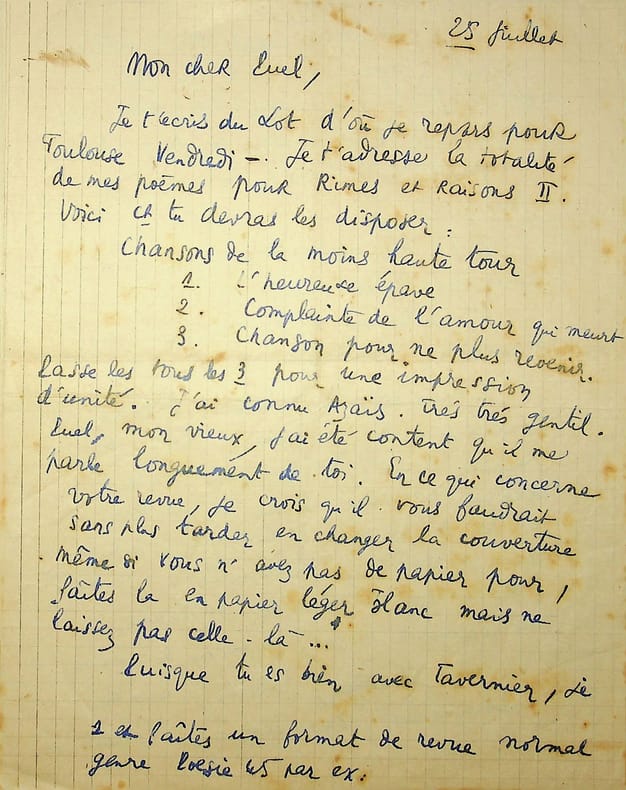 25 Juillet
Mon cher Puel,
Je t'écris du Lot d'où je repars pour
Toulouse Vendredi –. Je t'adresse la totalité
de mes poèmes pour Rimes et Raisons II.
Voici ct tu devras les disposer :
Chansons de la moins haute tour
1. L'heureuse épave
2. Complainte de l'amour qui meurt
3. Chanson pour ne plus revenir.
Passe les tous les 3 pour une impression
d'unité. J'ai connu Azaïs. Très très gentil.
Puel, mon vieux, j'ai été content qu'il me
parle longuement de toi. En ce qui concerne
votre revue, je crois qu'il vous faudrait
sans plus tarder en changer la couverture
même si vous n'avez pas de papier pour,
faîtes la en papier léger blanc mais ne
laissez pas celle-là ...
Puisque tu es bien avec Tavernier, je
1 et faîtes un format de revue normal
genre Poésie 45 par ex.